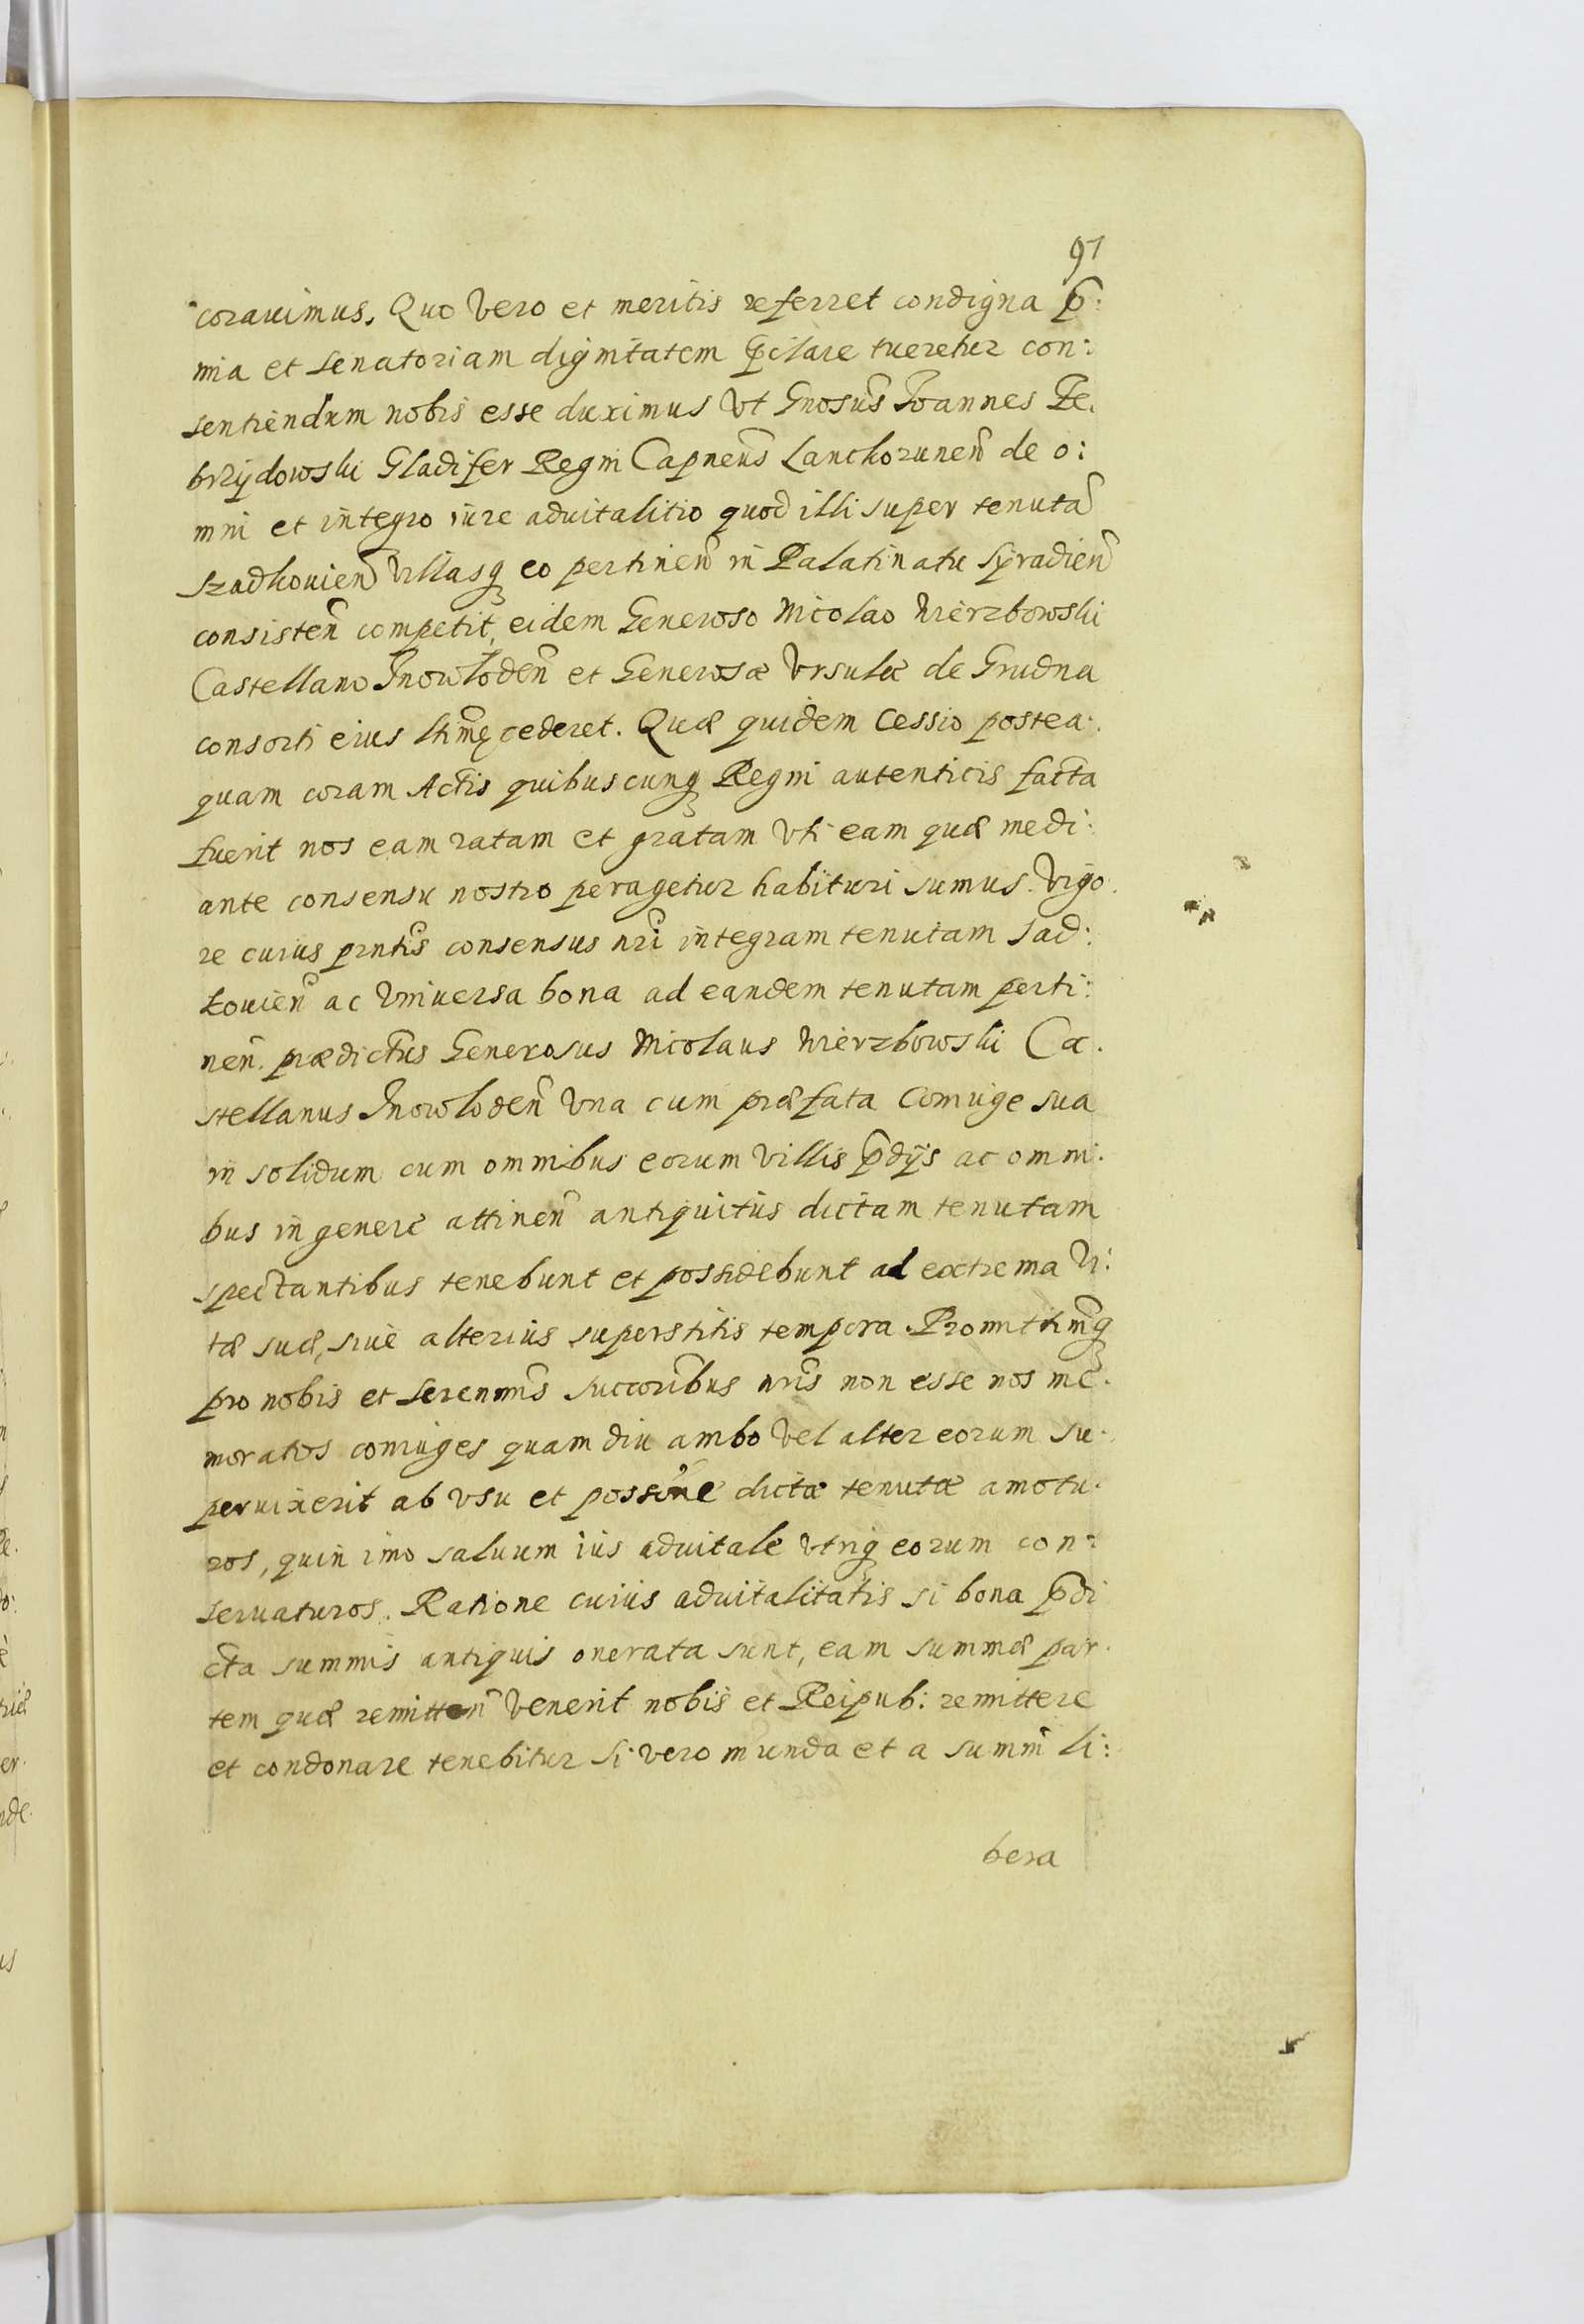 97
coravimus. Quo vero et meritis referret condigna p̃:
mia et senatoriam dignitatem p̃clare tueretur con:
sentiendum nobis esse duximus Vt Gnosus̃ Joannes Ze.
brzydowski Gladifer Regni Capneus̃ Lanckorunen̄ de o:
mni et integro iure advitalitio quod illi super tenutã
szadkovien̄ villasq̨ eo pertinen̄ in Palatinatu Syradien̄
consisten̄ competit, eidem Generoso Nicolao Wierzbowski
Castellano Inowlodẽn et Generosæ Vrsulæ de Grudna
consorti eius ltim̃ę cederet. Quæ quidem Cessio postea.
quam coram Actis quibuscunq̨ Regni autenticis facta
fuerit nos eam ratam et gratam Vti eam quæ medi:
ante consensu nostro peragetur habituri sumus. Vigo.
re cuius prntis̃ consensus nri̇̃ integram tenutam Sad:
kovien̄ ac Vniversa bona ad eandem tenutam perti:
nen̄. prædictus Generosus Nicolaus Wierzbowski Ca.
stellanus Inowloden̄ Vna cum præfata Coniuge sua
in solidum cum omnibus eorum Villis p̃dijs ac omni.
bus in genere attinen̄ antiquitùs dictam tenutam
spectantibus tenebunt et possidebunt ad extrema Vi:
tæ suæ, siue alterius superstitis tempora. Promittim̃q̨
pro nobis et Serenmis̃ succoribus̃ nris̃ non esse nos me.
moratos coniuges quam diu ambo Vel alter eorum su.
pervixerit ab Vsu et possiõne dictæ tenutæ amotu.
ros, quin imo saluum ius advitale Vtriq̨ eorum con:
servaturos. Ratione cuius advitalitatis si bona p̃di
cta summis antiquis onerata sunt, eam summæ par.
tem quæ remitten̄ Venerit nobis et Reipub: remittere
et condonare tenebitur Si vero munda et a summ̃ li:
bera